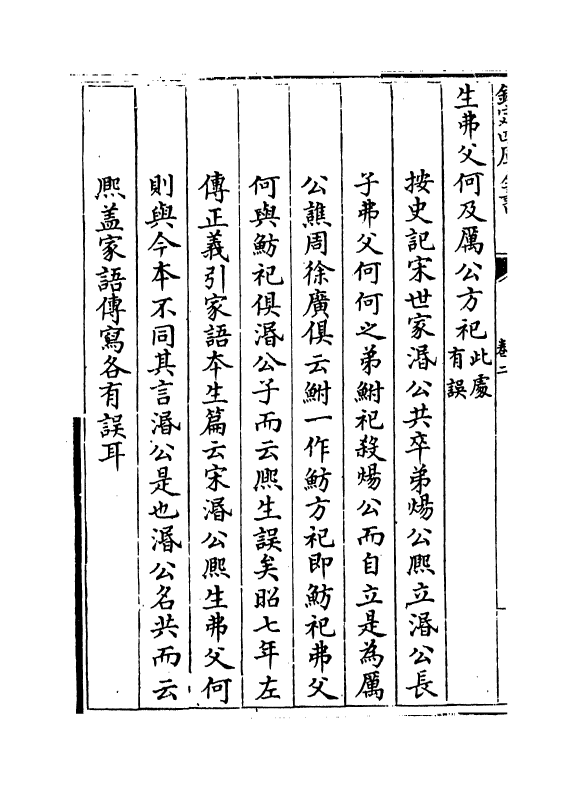 生弗父何及厲公方祀此處有誤
按史記宋世家湣公共卒弟煬公熈立湣公長
子弗父何何之弟鮒祀殺煬公而自立是為厲
公譙周徐廣俱云鮒一作魴方祀即魴祀弗父
何與魴祀俱湣公子而云熈生誤矣昭七年左
傳正義引家語本生篇云宋湣公熈生弗父何
則與今本不同其言湣公是也湣公名共而云
熈盖家語傳寫各有誤耳
卷二